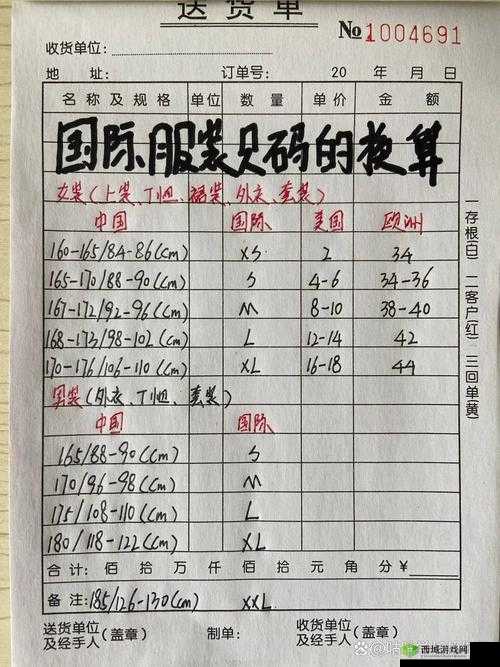 送货单
№1004691
收货单位：
地 址： 订单号： 20 年 月 日
名称及规格 单位 数量 单价 金额
国际服装尺码的换算
女装(上装、T恤、裙装、外衣、套装)
中国 国际 美国 欧洲
160-165/84-86(cm) XS 2 34
165-170/88-90(cm) S 4-6 34-36
167-172/92-96(cm) M 8-10 38-40
168-173/98-102(cm) L 12-14 42
170-176/106-110(cm) XL 16-18 44
男装(外衣、T恤、套装)
中国 国际
165/88-90(cm) S
170/96-98(cm) M
175/108-110(cm) L
180/118-122(cm) XL
合计： 佰 拾 万 仟 佰 拾 元 角 分 ¥
备注：185/126-130(cm) XXL
送货单位及经手人(盖章) 制单： 收货单位及经手人(盖章)
一存根(白) 二客户(红) 三回单(黄)
西域游戏网